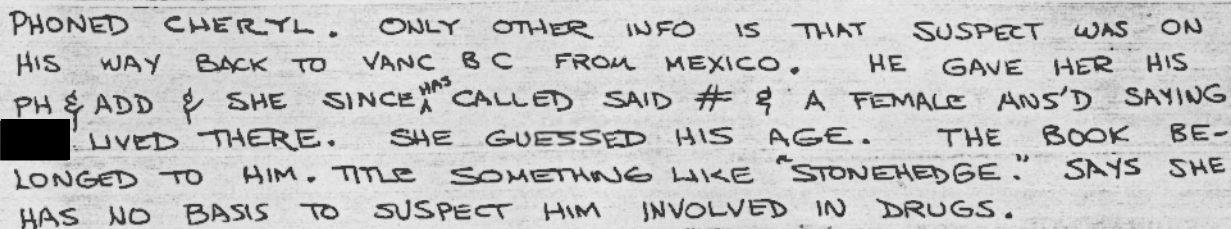 PHONED CHERYL. ONLY OTHER INFO IS THAT SUSPECT WAS ON
HIS WAY BACK TO VANC B C FROM MEXICO. HE GAVE HER HIS
PH & ADD & SHE SINCE HAS CALLED SAID # & A FEMALE ANS'D SAYING
LIVED THERE. SHE GUESSED HIS AGE. THE BOOK BE-
LONGED TO HIM. TITLE SOMETHING LIKE "STONEHEDGE." SAYS SHE
HAS NO BASIS TO SUSPECT HIM INVOLVED IN DRUGS.